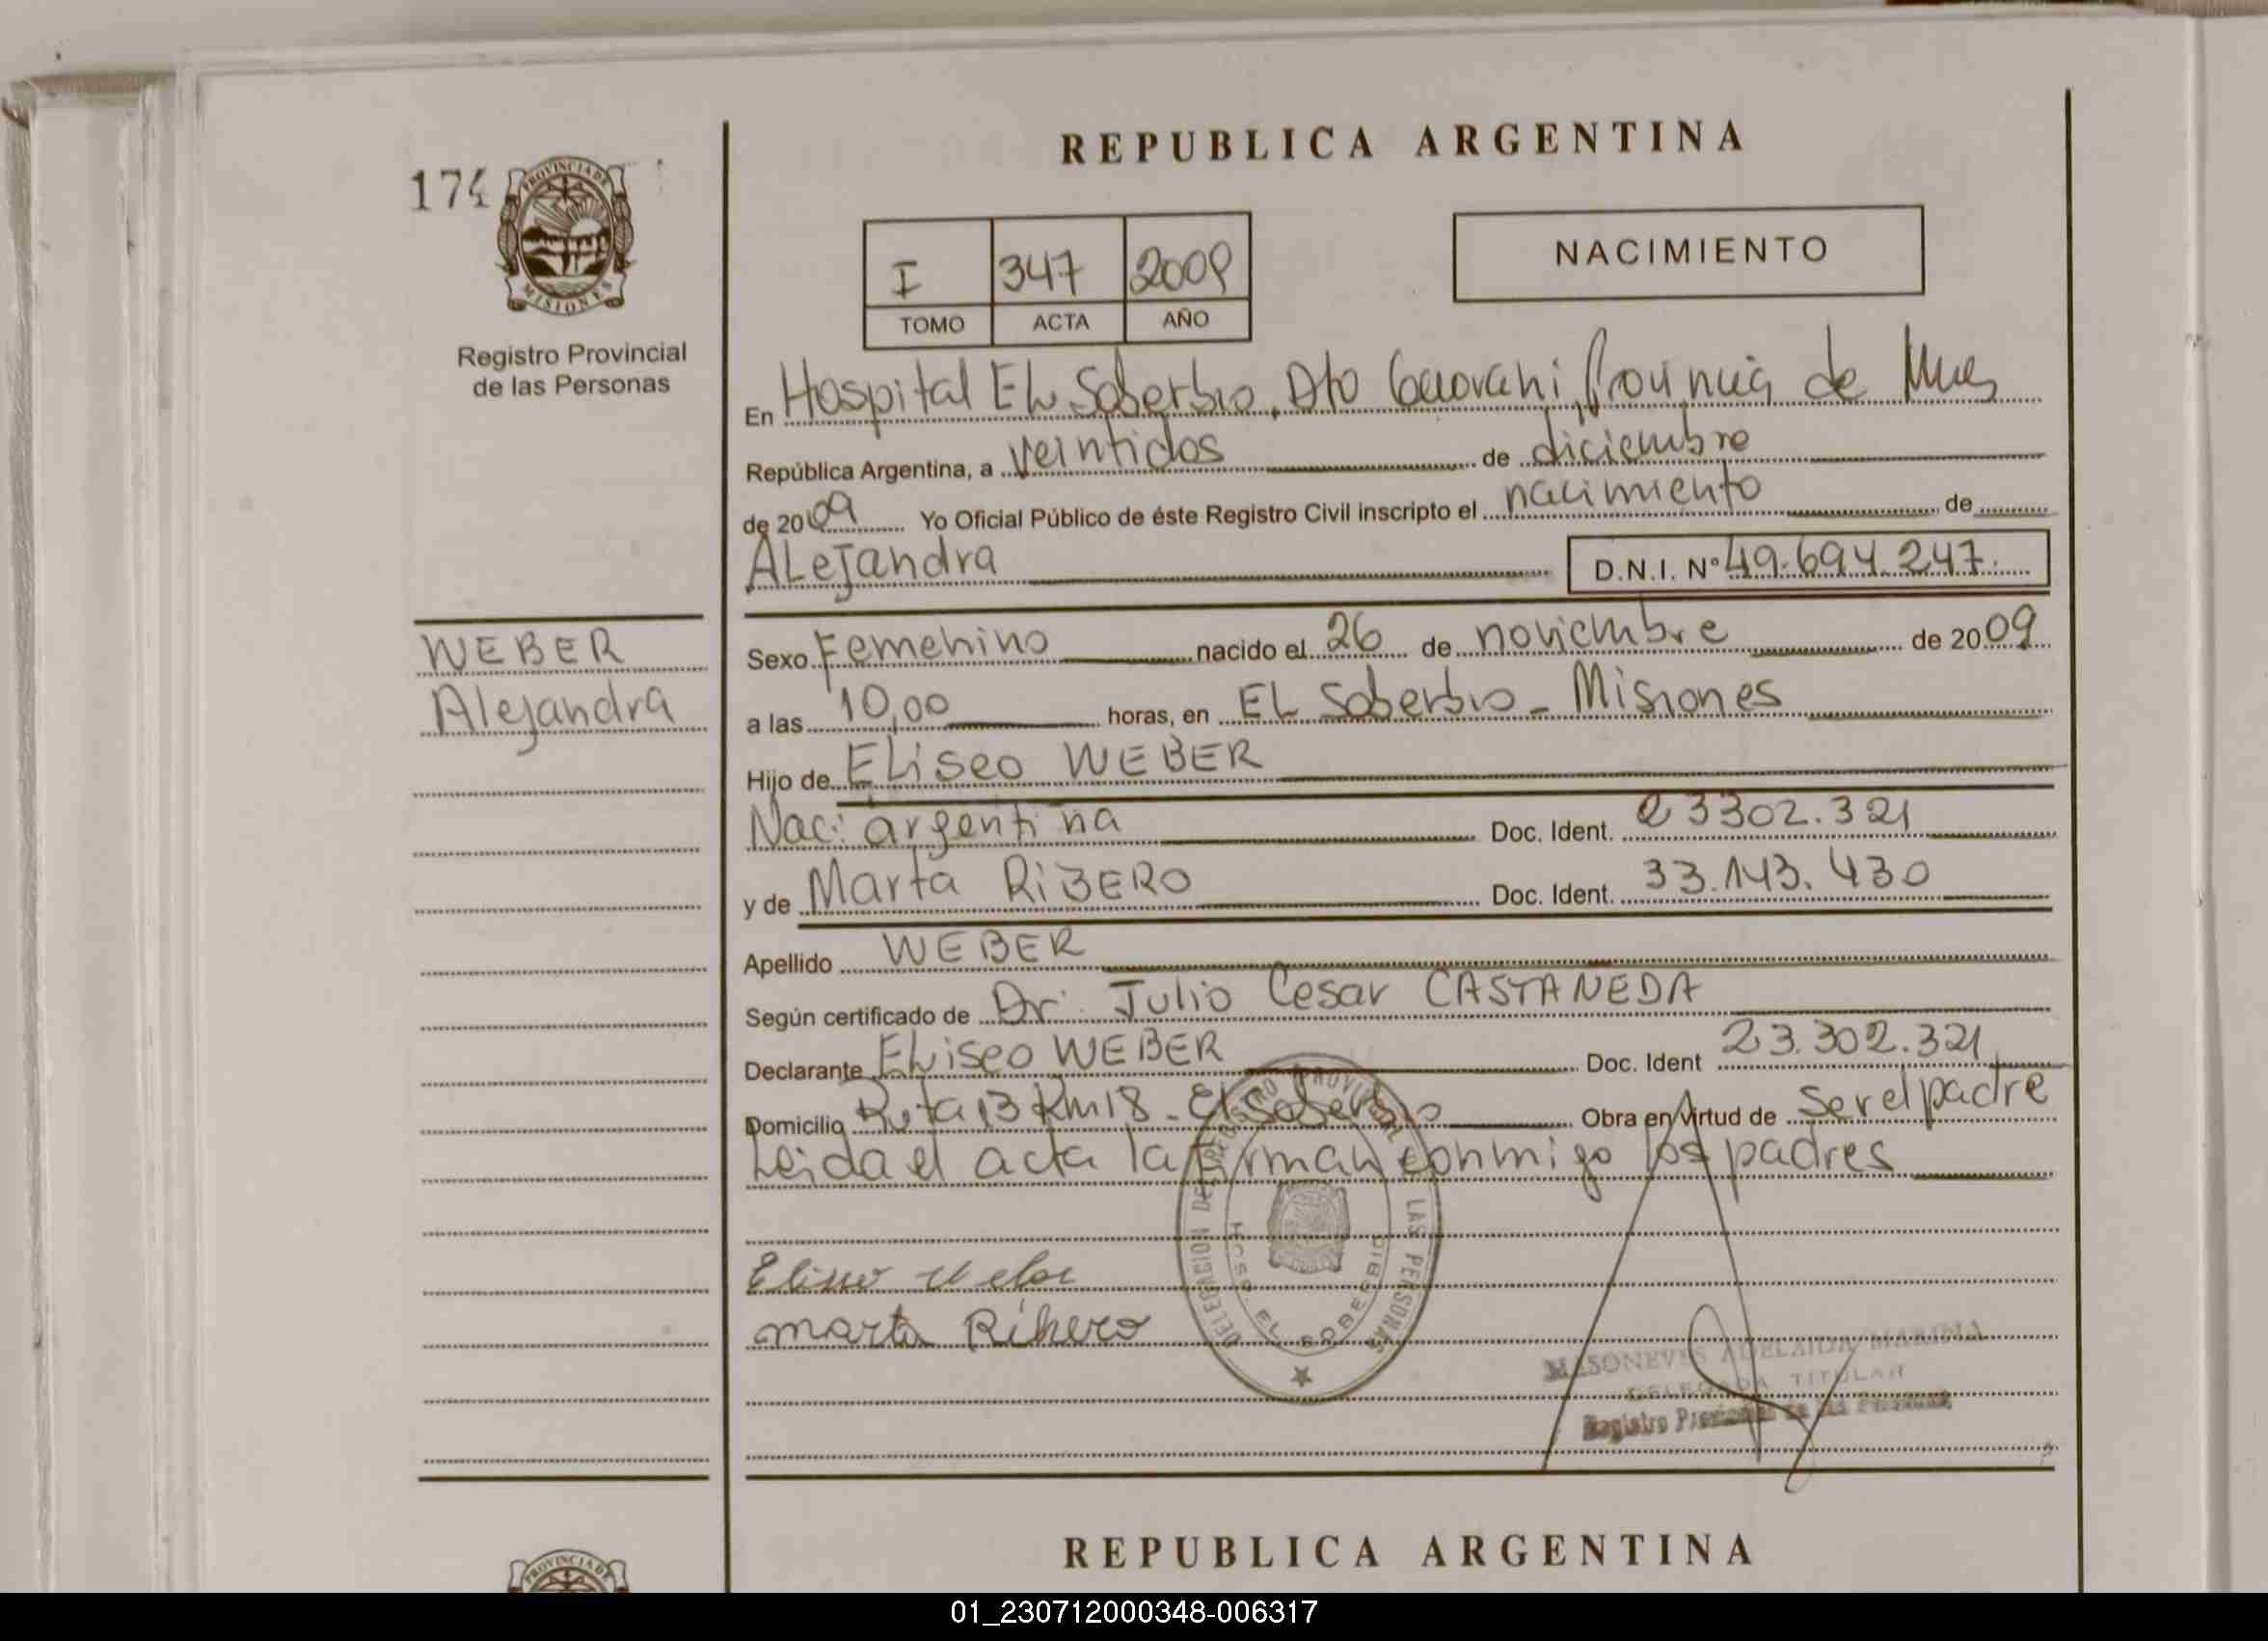 REPUBLICA ARGENTINA
174
PROVINCIA DE
MISIONES
Registro Provincial
de las Personas
I 347 2009
TOMO ACTA AÑO
NACIMIENTO
En Hospital EL Soberbio, Dto Guarani, Provincia de Mnes
República Argentina, a veintidos de diciembre
de 2009 Yo Oficial Público de éste Registro Civil inscripto el nacimiento de
ALejandra D.N.I. Nº 49.694.247.
WEBER
Alejandra
Sexo Femenino nacido el 26 de noviembre de 2009
a las 10,00 horas, en EL Soberbio - Misiones
Hijo de ELiseo WEBER
Nac: argentina Doc. Ident. 23302.321
y de Marta RiBERO Doc. Ident. 33.143.430
Apellido WEBER
Según certificado de Dr. Julio Cesar CASTANEDA
Declarante ELiseo WEBER Doc. Ident 23.302.321
Domicilio Ruta 13 Km 18 - El Soberbio Obra en virtud de ser el padre
Leida el acta la firman conmigo los padres
DELEGACION DEL REGISTRO PROVINCIAL LAS PERSONAS
HOSP EL SOBERBIO
Marta Ribero
ADELAIDA
DELEGADA TITULAR
Registro Provincial de las Personas
REPUBLICA ARGENTINA
PROVINCIA DE
01_230712000348-006317